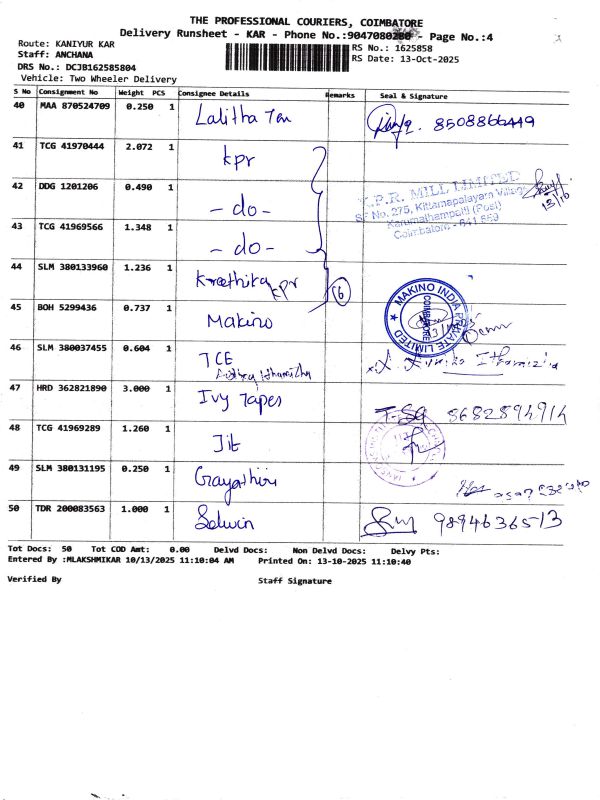 THE PROFESSIONAL COURIERS, COIMBATORE
Delivery Runsheet - KAR - Phone No.:9047080280 - Page No.:4
Route: KANIYUR KAR
RS No.: 1625858
Staff: ANCHANA
RS Date: 13-Oct-2025
DRS No.: DCJB162585804
Vehicle: Two Wheeler Delivery
S No Consignment No Weight PCS Consignee Details Remarks Seal & Signature
40 MAA 870524709 0.250 1 Lalitha 8508866449
41 TCG 41970444 2.072 1 kpr
42 DDG 1201206 0.490 1 - do -
K.P.R. MILL LIMITED
SF No. 275, Kittampalayam Village
Karumathampatti (Post)
Coimbatore - 641 659
13/10
43 TCG 41969566 1.348 1 - do -
44 SLM 380133960 1.236 1 Kreethika kpr
45 BOH 5299436 0.737 1 Makino
MAKINO INDIA PRIVATE LIMITED
COIMBATORE
46 SLM 380037455 0.604 1 TCE
47 HRD 362821890 3.000 1 Ivy Tapes
48 TCG 41969289 1.260 1 Jit
49 SLM 380131195 0.250 1 Gayathiri
50 TDR 200083563 1.000 1 Selwin 9894636513
Tot Docs: 50 Tot COD Amt: 0.00 Delvd Docs: Non Delvd Docs: Delvy Pts:
Entered By :MLAKSHMIKAR 10/13/2025 11:10:04 AM Printed On: 13-10-2025 11:10:40
Verified By Staff Signature